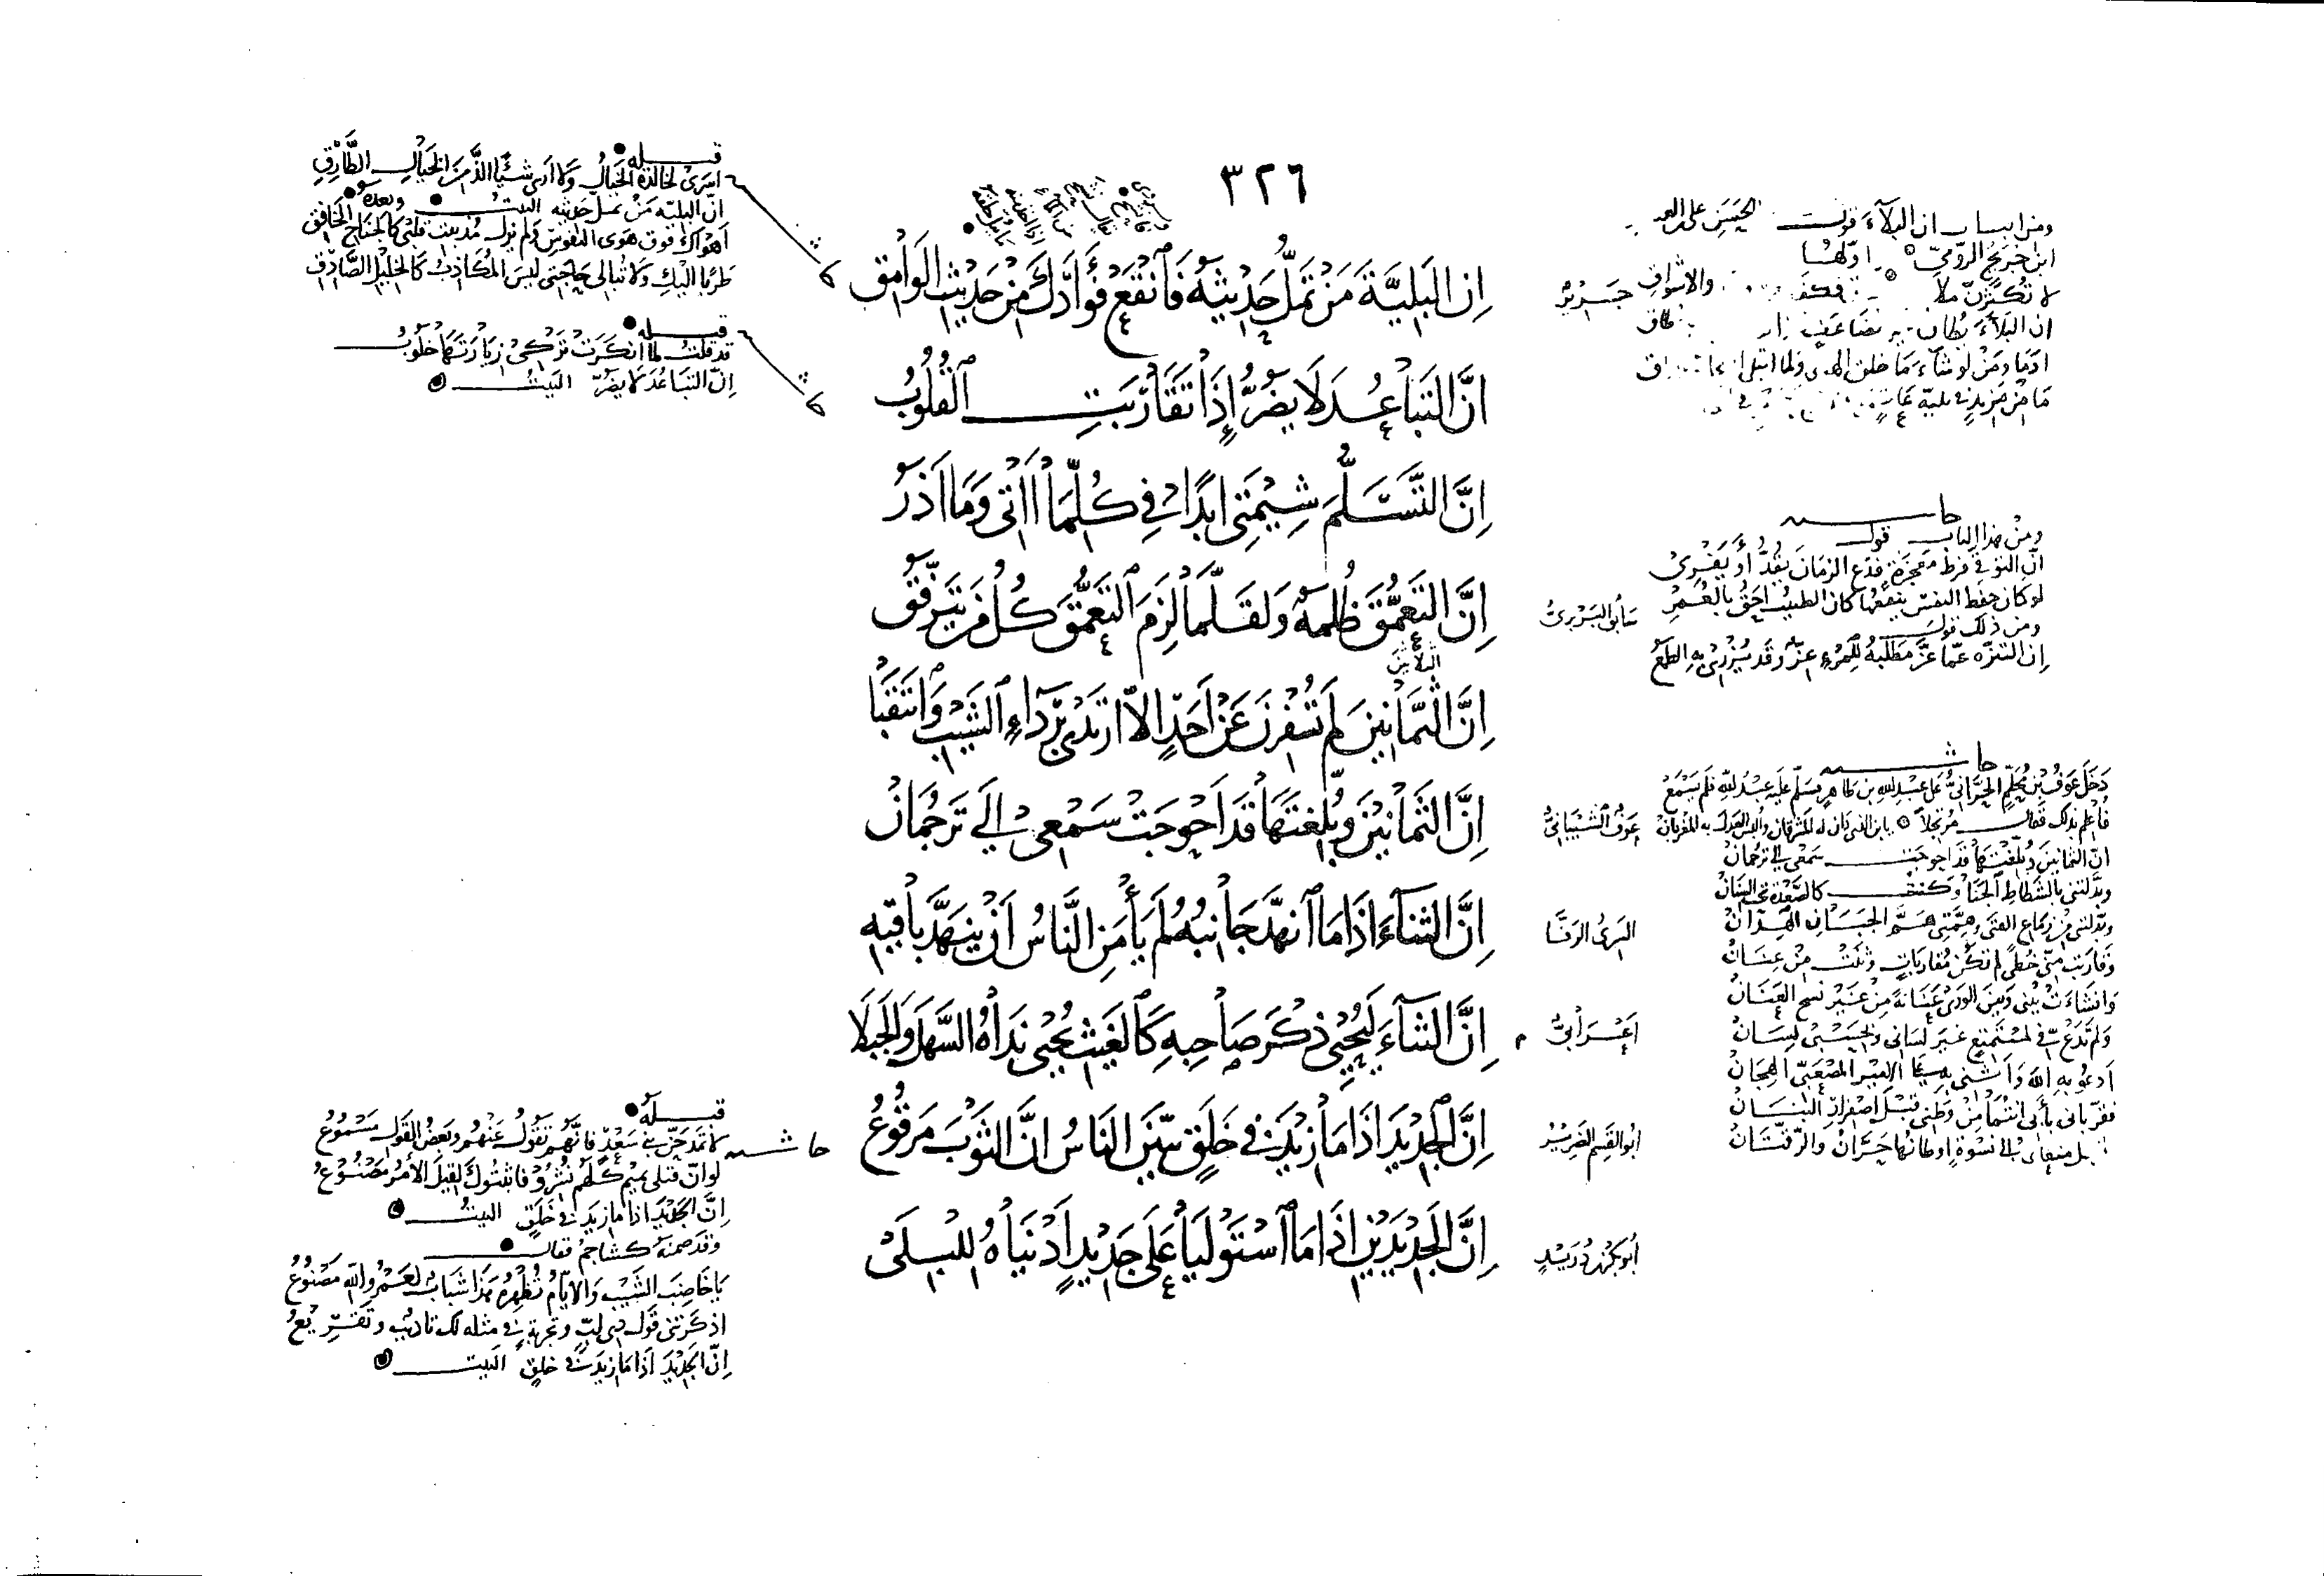 ٣٢٦
اِنَّ البَلِيَّةَ مَنْ تَمَلُّ حَدِيْثَهُ فَانْقَعْ فُؤَادَكَ مِنْ حَدِيْثِ الوَامِقِ
جَرِيْرٌ
اِنَّ التَبَاعُدَ لَا يَضُرُّ اِذَا تَقَارَبَتِ القُلُوْبُ
اِنَّ التَّسَلُّمَ شِيْمَتِى اَبَدًا فِي كُلِّمَا اٰتِى وَمَا اَذَرُ
اِنَّ التَعَمُّقَ ظُلْمَةٌ وَلَقَلَّمَا لَزِمَ التَعَمُّقَ كُلُّ مَنْ يَتَرَفَّقُ
سَابِقُ البَرْبَرِىُّ
الثلاثين
اِنَّ الثَمَانِينَ لَم تَسْفُرنَ عَنْ اَحَدٍ اِلاّ ارتَدَى بِرِدَاءِ الشَيْبِ وَانْتَقَبَا
اِنَّ الثَمَانِيْنَ وَبُلِّغْتَهَا قَدْ اَحْوَجَتْ سَمْعِى اِلَى تَرْجُمَانْ
عَوْفُ الشَّيْبَانِىُّ
اِنَّ البَنَآءَ اِذَا مَا انْهَدَّ جَانِبُهُ لَم يَأمَنِ النَّاسُ اَنْ يَنْهَدَّ بَاقِيهِ
السَرِىُّ الرَفَّا
اِنَّ الثَنَآءَ لَيُحْيِىْ ذِكْرَ صَاحِبِهِ كَالغَيْثِ يُحْيِى نَدَاهُ السَّهْلَ وَالجَبَلَا
اَعْرَابِىٌّ
اِنَّ الجَدِيْدَ اِذَا مَا زِيْدَ فِى خَلَقٍ تَبَيَّنَ النَاسُ اَنَّ الثَوْبَ مَرْقُوْعُ
اَبُو القَسِم الضَرِيْرُ
اِنَّ الجَدِيْدَيْنِ اِذَا مَا اسْتَوْلَيَا عَلَى جَدِيْدٍ اَدْنَيَاهُ لِلبِلَىْ
اَبُو بَكْرِ بْنُ دُرَيْدٍ
قبله
اَسَرَى لِخَالِدَةَ الخَيَالُ وَلَا اَرَى شَيْئًا اَلَذَّ مِنَ الخَيَالِ الطَّارِقِ
اِنَّ البَلِيّة مَنْ تَمَلُّ حَدِيْثَه البيتُ وبعده
اَهْوَاكِ فَوْقَ هَوَى النُفُوسِ وَلم يَزَلْ مُذْ بِنْتِ قَلْبِى كَالجَنَاحِ الخَافِقِ
طَرَبًا اِلَيْكِ وَلَا تُبَالِى حَاجَتِى لَيْسَ المُكَاذِبُ كَالخَلِيْلِ الصَّادِقِ
قبله
قَد قلتُ لمّا اَنْكَرَتْ تَرْكِى زِيَارَتَهَا خَلُوْبُ
اِنَّ التَبَاعُدَ لَا يَضُرُّ البَيْتُ
ومن ابيات ان البلآءَ قولُ الحَسَنِ على العـ
ابن جُرَيْجٍ الرُّومِىّ اوّلها
لا تُكْثِرَنَّ مَلا والاشْوَاقِ
ان البَلَآءَ يُطَاقُ غير مُضَاعَفٍ
حاشيه
ومِنْ هذا الباب قول
اِنَّ التَوَقِّى فَرْطُ مَعْجَزَةٍ فَدَعِ الزمَانَ يَقُدُّ اَوْ يَفْرِى
لو كَانَ حِفْظُ النَفْسِ يَنْفَعُهَا كانَ الطبيبُ اَحَقَّ بالعُمْرِ
ومن ذلِكَ قول
اِن التَنَزُّهَ عَمّا عَزَّ مَطْلَبُهُ لِلمَرْءِ عِزٌّ وقد يُزْرِى بِهِ الطَمَعُ
حاشيه
دَخَلَ عَوْفُ بْنُ مُحَلِّمٍ الحَرَّانِىُّ عَلى عَبْدِ اللهِ بن طَاهِرٍ فَسَلَّمَ عَلَيْهِ عَبْدُ اللهِ فَلم يَسْمَعْ
فَاُعْلِمَ بذلك فَقَال مُرْتَجِلًا يا بن الذى دَانَ له المَشْرِقَانْ واُلبِسَ العَدْلَ به المَغْرِبَانْ
اِنَّ الثَمَانِينَ وَبُلِّغْتَهَا قَد اَحْوَجَتْ سَمْعِى الى تَرجُمَانْ
وبَدَّلَتْنِى بِالشَطَاطِ الحَنَا وَكُنْتُ كَالصَّعْدَةِ تحت السِنَانْ
وبَدَّلَتْنِى مِنْ زِمَاعِ الفَتَى وَهِمَّتِى هَمَّ الجَبَانِ الهِدَانْ
وَقَارَبَتْ مِنّى خُطًى لم تكُنْ مُقَارَبَاتٍ وثَنَتْ مِنْ عِنَانْ
وَانْشَأَتْ بَيْنِى وَبَيْنَ الوَرَى عَنَانَةً مِنْ غَيْرِ نَسْجِ العَنَانْ
وَلَم تَدَعْ فِىَّ لمُسْتَمْتِعٍ غَيْرَ لِسَانِى وَبِحَسْبِى لِسَانْ
اَدْعُو بِهِ اللهَ وَاُثْنِى بِهِ عَلَى الاَمِيرِ المُصْعَبِىّ الهِجَانْ
فَقَرِّبَانِى بأَبِى اَنْتُمَا مِنْ وَطَنِى قَبْلَ اصْفِرَارِ البَنَانْ
اِلى نِسْوَةٍ اوطانُها حَرَّانُ والرَّقَّتَانْ
حاشيه
قبله
لا تَمْدَحَنَّ بَنِى سَعْدٍ فَاِنَّهُم تَقُوْلُ عَنْهُم وَبَعْضُ القَوْلِ مَسْمُوْعُ
لَو اَنَّ قتلى تَمِيمٍ كُلَّهُم نُشِرُوا فَاَثْبَتُوكَ لَقِيلَ الاَمْرُ مَصْنُوعُ
اِنَّ الجَدِيْدَ اذا مَا زِيدَ فى خَلَقٍ البيتُ
وقَد ضمنَه كُشَاجِمُ فقال
يَا خَاضِبَ الشَيْبِ وَالايّامُ تُظْهِرُهُ هَذَا شَبَابٌ لَعَمْرُ واللهِ مَصْنُوعُ
اَذْكَرْتَنِى قَوْلَ ذِى لُبٍّ وتَجْرِبَةٍ فِى مِثْلِه لَكَ تَأدِيْبٌ وَتَقْرِيْعُ
اِنَّ الجَدِيْدَ اِذَا مَا زِيْدَ فى خَلَقٍ البيت